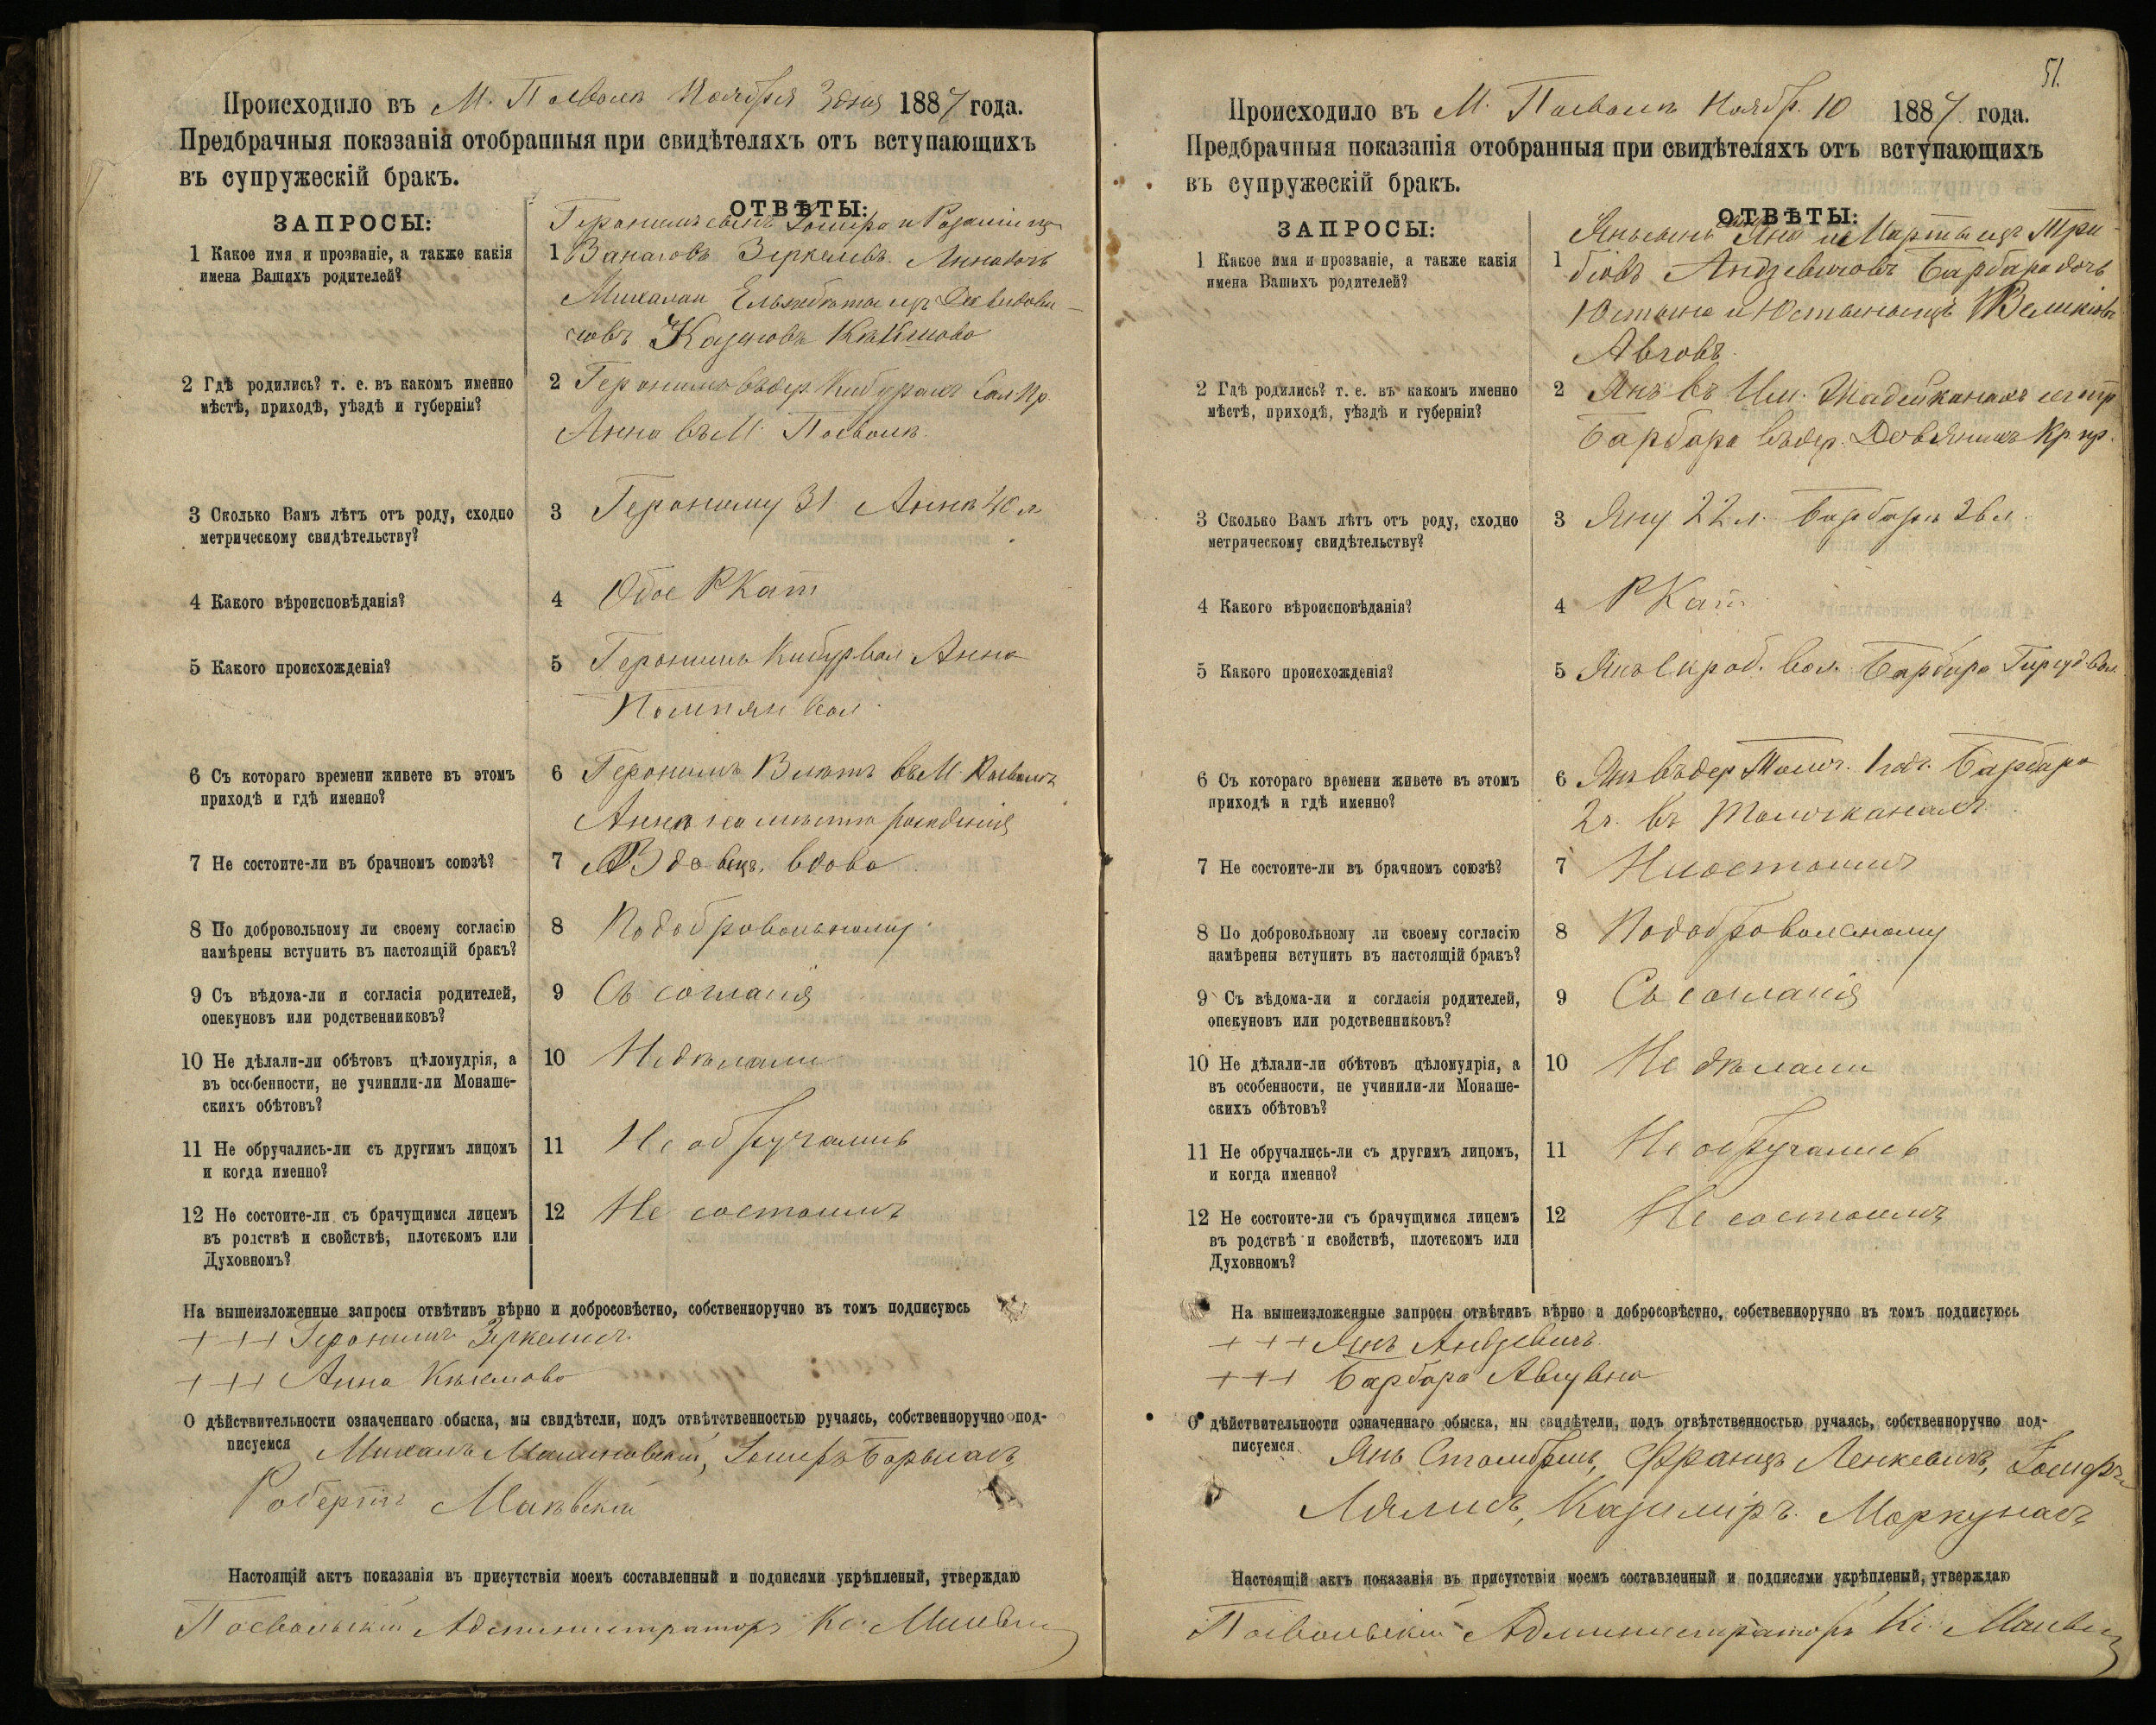 Происходило въ М. Посволь Ноября 3 дня 1887 года.
Предбрачныя показанія отобранныя при свидѣтеляхъ отъ вступающихъ
въ супружескій бракъ.
ЗАПРОСЫ:
ОТВѢТЫ:
1 Какое имя и прозваніе, а также какія
имена Вашихъ родителей?
1 Геронимъ сынъ Іосифа и Розаліи изъ
Зеркелевъ. Анна дочь
Михала и Ельжбѣты изъ
2 Гдѣ родились? т. е. въ какомъ именно
мѣстѣ, приходѣ, уѣздѣ и губерніи?
2 Геронимъ въ дер.
Анна въ М. Посволь.
3 Сколько Вамъ лѣтъ отъ роду, сходно
метрическому свидѣтельству?
3 Герониму 31 Аннѣ 40 л
4 Какого вѣроисповѣданія?
4 Обое РКат
5 Какого происхожденія?
5 Геронимъ Кибур вол Анна
Помпян вол.
6 Съ котораго времени живете въ этомъ
приходѣ и гдѣ именно?
6 Геронимъ въ М.
Анна на мѣстѣ рожденія
7 Не состоите-ли въ брачномъ союзѣ?
7 Вдовецъ, вдова
8 По добровольному ли своему согласію
намѣрены вступить въ настоящій бракъ?
8 По добровольному.
9 Съ вѣдома-ли и согласія родителей,
опекуновъ или родственниковъ?
9 Съ согласія
10 Не дѣлали-ли обѣтовъ цѣломудрія, а
въ особенности, не учинили-ли Монаше-
скихъ обѣтовъ?
10 Не дѣлали
11 Не обручались-ли съ другимъ лицомъ
и когда именно?
11 Не обручались
12 Не состоите-ли съ брачущимся лицемъ
въ родствѣ и свойствѣ, плотскомъ или
Духовномъ?
12 Не состоимъ
На вышеизложенные запросы отвѣтивъ вѣрно и добросовѣстно, собственноручно въ томъ подписуюсь
+++ Геронимъ Зеркелисъ.
+++ Анна
О дѣйствительности означеннаго обыска, мы свидѣтели, подъ отвѣтственностью ручаясь, собственноручно под-
писуемся Михалъ Малиновскій, Іосифъ
Робертъ
Настоящій актъ показанія въ присутствіи моемъ составленный и подписями укрѣпленый, утверждаю
Посвольскій Администраторъ Кс.
51.
Происходило въ М. Посволь Ноябр. 10 1887 года.
Предбрачныя показанія отобранныя при свидѣтеляхъ отъ вступающихъ
въ супружескій бракъ.
ЗАПРОСЫ:
ОТВѢТЫ:
1 Какое имя и прозваніе, а также какія
имена Вашихъ родителей?
1 Янъ сынъ Яна и Марты изъ Три-
бовъ Андзевичовъ Барбара дочь
Юстина и Юстыны изъ
Авговъ.
2 Гдѣ родились? т. е. въ какомъ именно
мѣстѣ, приходѣ, уѣздѣ и губерніи?
2 Янъ въ Им.
Барбара въ дер. Довянишъ Кр. пр.
3 Сколько Вамъ лѣтъ отъ роду, сходно
метрическому свидѣтельству?
3 Яну 22 л. Барбарѣ 26 л.
4 Какого вѣроисповѣданія?
4 РКат.
5 Какого происхожденія?
5 Янъ Скроб. вол. Барбара вол
6 Съ котораго времени живете въ этомъ
приходѣ и гдѣ именно?
6 Янъ въ дер 1 годъ. Барбара
2 г. въ
7 Не состоите-ли въ брачномъ союзѣ?
7 Не состоимъ
8 По добровольному ли своему согласію
намѣрены вступить въ настоящій бракъ?
8 По добровольному
9 Съ вѣдома-ли и согласія родителей,
опекуновъ или родственниковъ?
9 Съ согласія
10 Не дѣлали-ли обѣтовъ цѣломудрія, а
въ особенности, не учинили-ли Монаше-
скихъ обѣтовъ?
10 Не дѣлали
11 Не обручались-ли съ другимъ лицомъ,
и когда именно?
11 Не обручались
12 Не состоите-ли съ брачущимся лицемъ
въ родствѣ и свойствѣ, плотскомъ или
Духовномъ?
12 Не состоимъ
На вышеизложенные запросы отвѣтивъ вѣрно и добросовѣстно, собственноручно въ томъ подписуюсь
+++ Янъ Андзевичъ.
+++ Барбара Авгувна
О дѣйствительности означеннаго обыска, мы свидѣтели, подъ отвѣтственностью ручаясь, собственноручно под-
писуемся Янъ Стомбрисъ, Францъ Ленкевичъ, Іосифъ
Лялисъ, Казиміръ. Моркунасъ
Настоящій актъ показанія въ присутствіи моемъ составленный и подписями укрѣпленый, утверждаю
Посвольскій Администраторъ Кс.